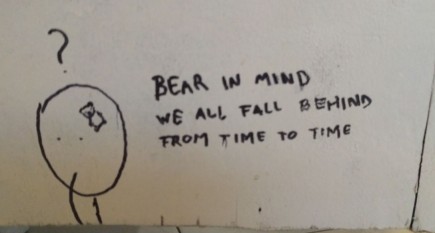 ?
BEAR IN MIND
WE ALL FALL BEHIND
FROM TIME TO TIME